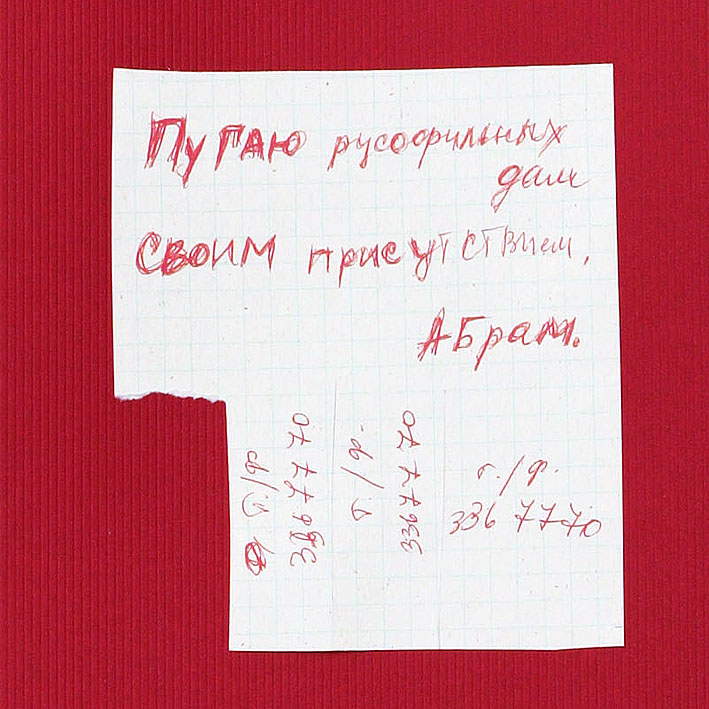 Пугаю русофильных
дам
своим присутствием.
Абрам.
т./ф.
3367770
т./ф.
3367770
т./ф.
336 7770